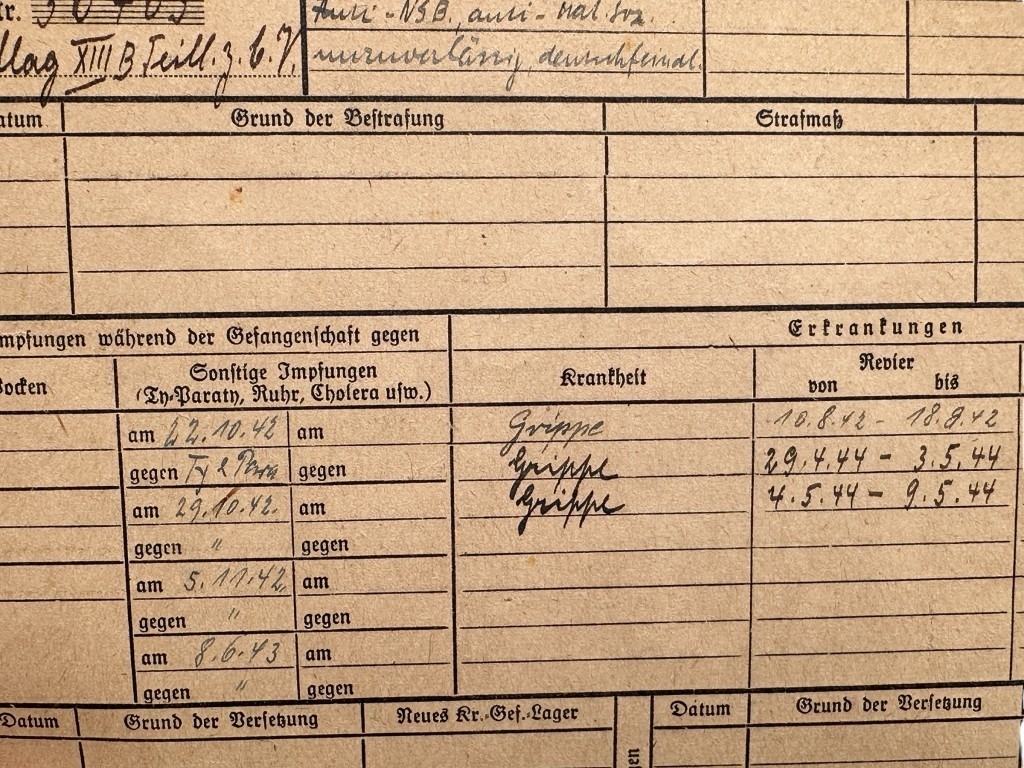 Nr. 30703
Anti-NSB., anti-nat. soz.
XIII B Teill. z. b. V.
unzuverlässig, deutschfeindl.
Datum Grund der Bestrafung Strafmaß
Impfungen während der Gefangenschaft gegen
Erkrankungen
Pocken
Sonstige Impfungen
(Ty-Paraty, Ruhr, Cholera usw.)
Krankheit
Revier
von bis
am 22.10.42 am
Grippe 10.8.42 - 18.8.42
gegen Ty & Para gegen
Grippe 29.4.44 - 3.5.44
am 29.10.42. am
Grippe 4.5.44 - 9.5.44
gegen " gegen
am 5.11.42 am
gegen " gegen
am 8.6.43 am
gegen " gegen
Datum Grund der Versetzung Neues Kr.-Gef.-Lager Datum Grund der Versetzung